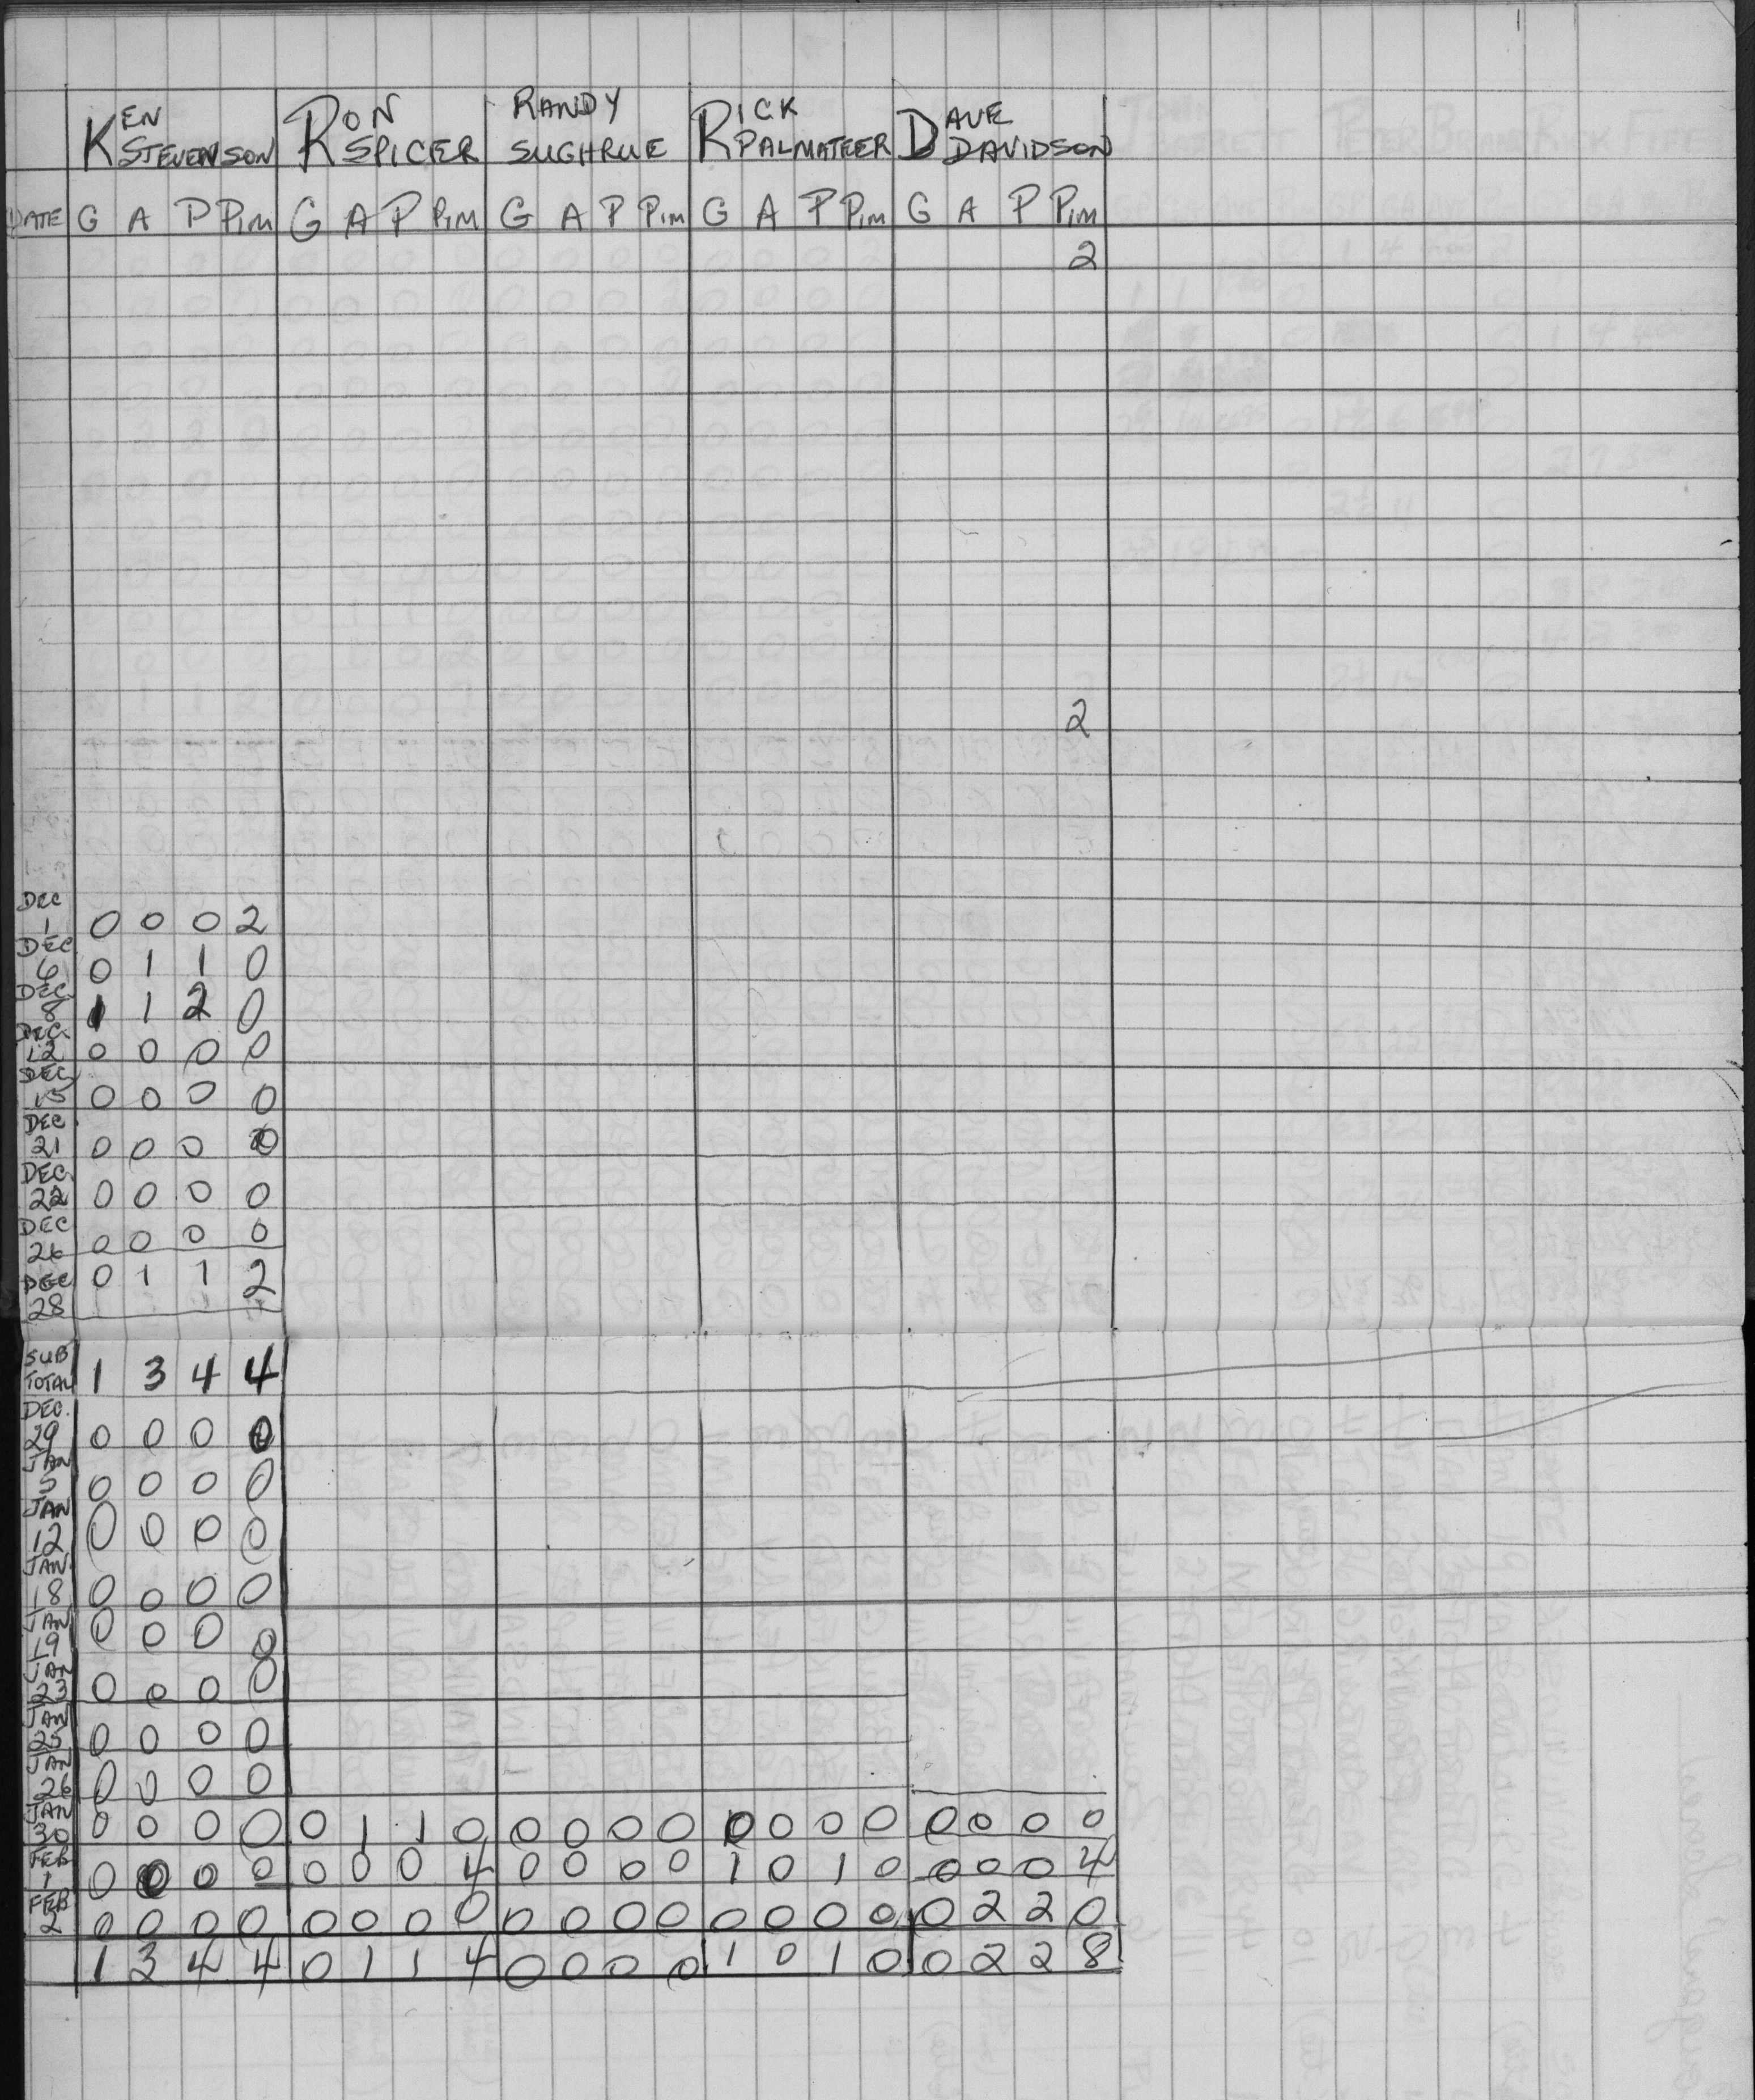 KEN STEVENSON RON SPICER RANDY SUGHRUE RICK PALMATEER DAVE DAVIDSON
DATE G A P PIM G A P PIM G A P PIM G A P PIM G A P PIM
2
2
DEC 1 0 0 0 2
DEC 6 0 1 1 0
DEC 8 1 1 2 0
DEC 12 0 0 0 0
DEC 15 0 0 0 0
DEC 21 0 0 0 0
DEC 22 0 0 0 0
DEC 26 0 0 0 0
DEC 28 0 1 1 2
SUB TOTAL 1 3 4 4
DEC. 29 0 0 0 0
JAN 5 0 0 0 0
JAN 12 0 0 0 0
JAN. 18 0 0 0 0
JAN 19 0 0 0 0
JAN 23 0 0 0 0
JAN 25 0 0 0 0
JAN 26 0 0 0 0
JAN 30 0 0 0 0 0 1 1 0 0 0 0 0 0 0 0 0 0 0 0 0
FEB 1 0 0 0 0 0 0 0 4 0 0 0 0 1 0 1 0 0 0 0 4
FEB 2 0 0 0 0 0 0 0 0 0 0 0 0 0 0 0 0 0 2 2 0
1 3 4 4 0 1 1 4 0 0 0 0 1 0 1 0 0 2 2 8